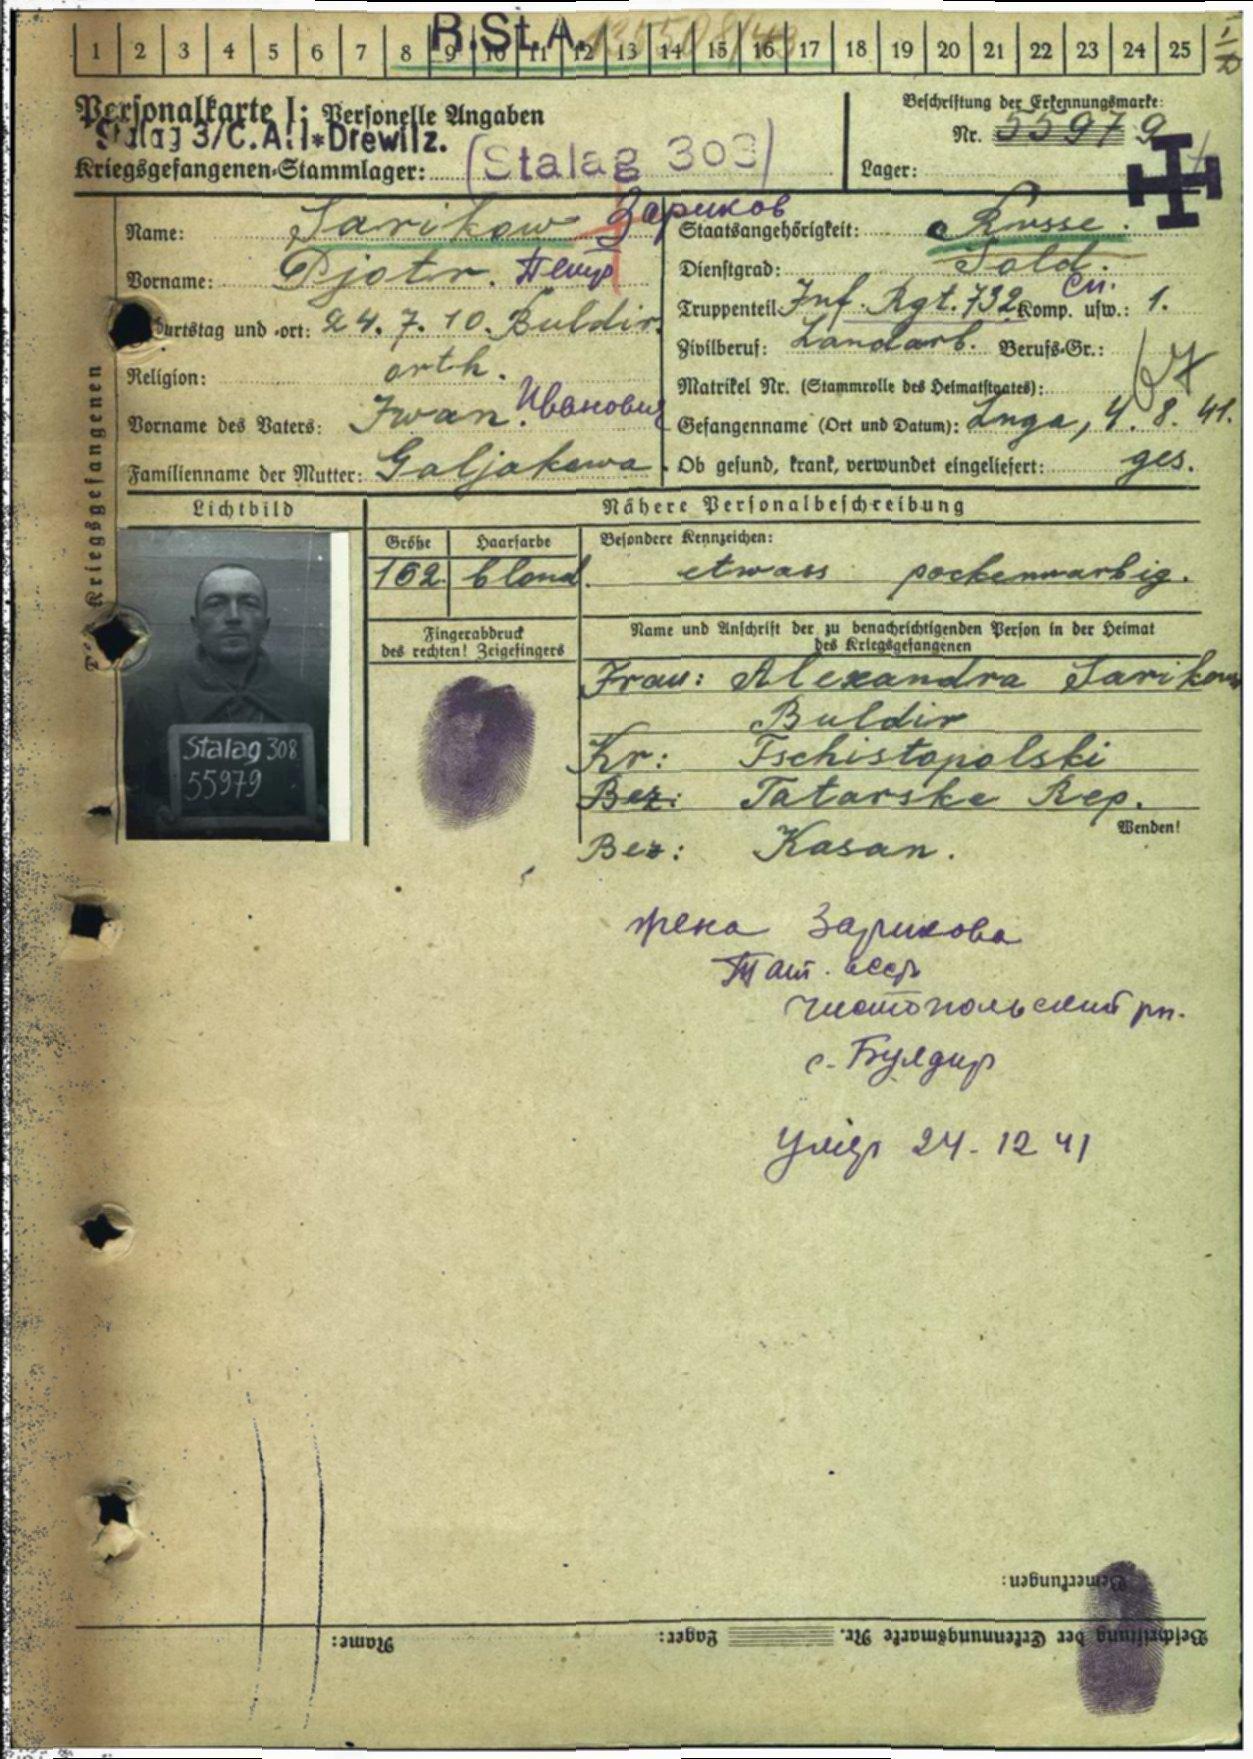 1 2 3 4 5 6 7 8 9 10 11 12 13 14 15 16 17 18 19 20 21 22 23 24 25
R.St.A.
Personalkarte I: Personelle Angaben
Stalag 3/C. Alt-Drewitz.
Kriegsgefangenen-Stammlager: (Stalag 303)
Beschriftung der Erkennungsmarke:
Nr. 55979
Lager:
des Kriegsgefangenen
Name: Sarikow Зариков
Vorname: Pjotr. Петр
Geburtstag und -ort: 24. 7. 10. Buldir.
Religion: orth.
Vorname des Vaters: Iwan. Иванович
Familienname der Mutter: Galjakowa.
Staatsangehörigkeit: Russe.
Dienstgrad: Sold.
Truppenteil: Inf. Rgt. 732 Komp. usw.: 1.
сп.
Zivilberuf: Landarb. Berufs-Gr.:
Matrikel Nr. (Stammrolle des Heimatstaates):
Gefangennahme (Ort und Datum): Luga, 4. 8. 41.
Ob gesund, krank, verwundet eingeliefert: ges.
Lichtbild
Nähere Personalbeschreibung
Größe Haarfarbe Besondere Kennzeichen:
162 blond. etwass pockennarbig.
Stalag 308
55979
Fingerabdruck
des rechten! Zeigefingers
Name und Anschrift der zu benachrichtigenden Person in der Heimat
des Kriegsgefangenen
Frau: Alexandra Sarikow
Buldir
Kr: Tschistopolski
Bez: Tatarske Rep.
Wenden!
Bez: Kasan.
жена Зарикова
Тат. ССР
Чистопольский рн.
с. Булдир
Умер 24-12 41
Bemerkungen:
Beschriftung der Erkennungsmarke Nr. Lager: Name: